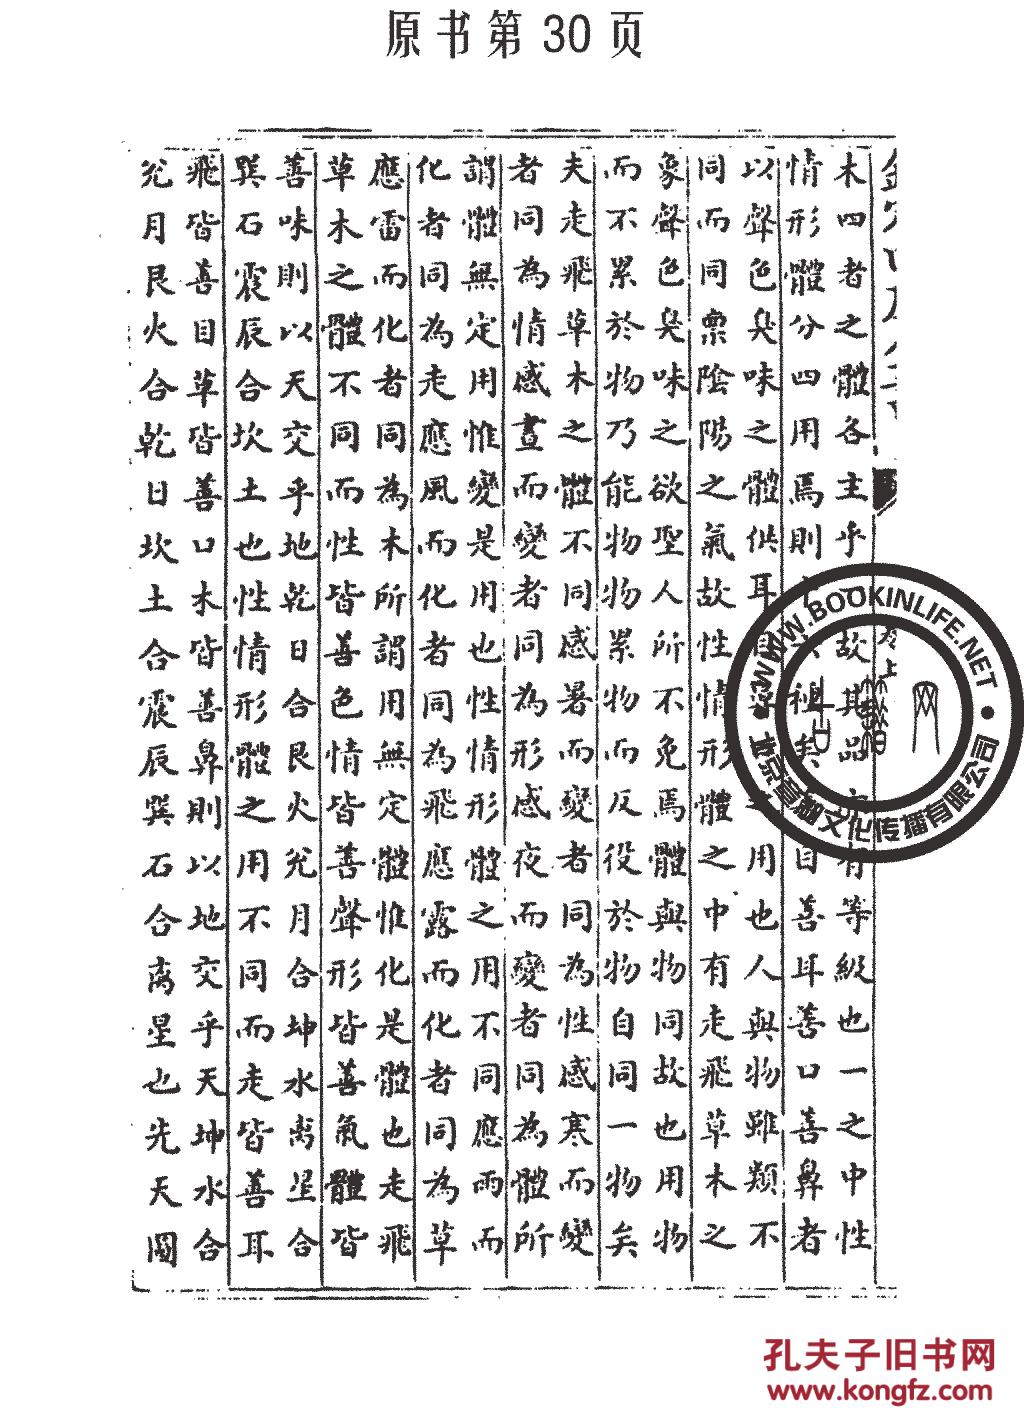 原书第30页
木四者之體各主乎故其品有等級也一之中性
情形體分四用焉則目善耳善口善鼻者
以聲色臭味之體供耳目之用也人與物雖類不
同而同禀陰陽之氣故性情形體之中有走飛草木之
象聲色臭味之欲聖人所不免焉體與物同故也用物
而不累於物乃能物物累物而反役於物自同一物矣
夫走飛草木之體不同感暑而變者同為性感寒而變
者同為情感晝而變者同為形感夜而變者同為體所
謂體無定用惟變是用也性情形體之用不同應雨而
化者同為走應風而化者同為飛應露而化者同為草
應雷而化者同為木所謂用無定體惟化是體也走飛
草木之體不同而性皆善色情皆善聲形皆善氣體皆
善味則以天交乎地乾日合艮火兊月合坤水离星合
巽石震辰合坎土也性情形體之用不同而走皆善耳
飛皆善目草皆善口木皆善鼻則以地交乎天坤水合
兊月艮火合乾日坎土合震辰巽石合离星也先天圖
WWW.BOOKINLIFE.NET
文化传播有限公司
孔夫子旧书网
www.kongfz.com